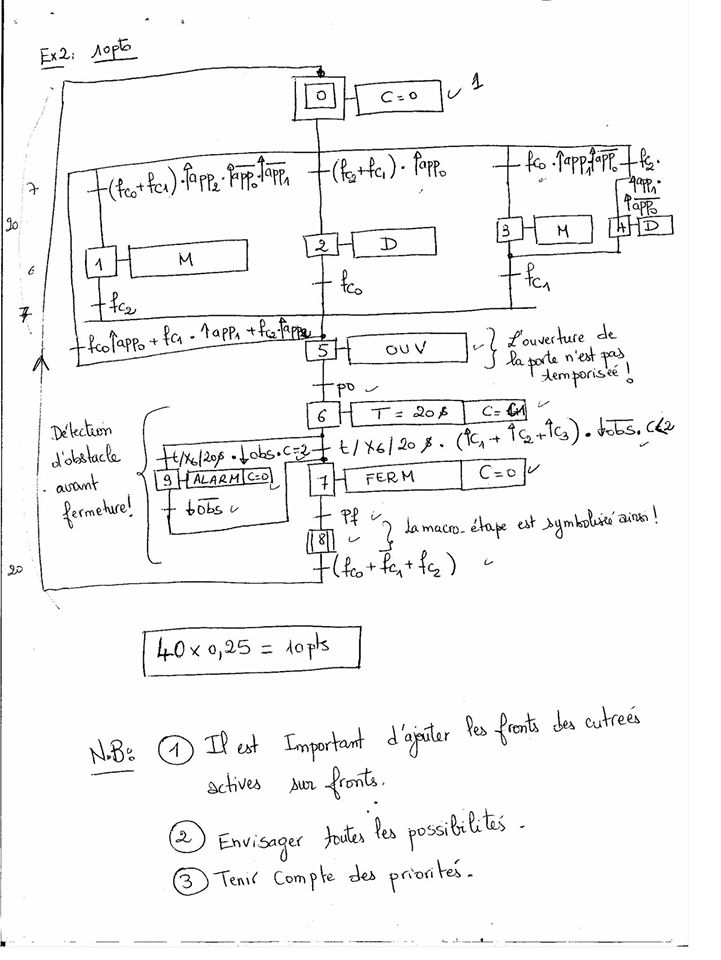 Ex2: 10pts
0
C=0
1
7
(fc0+fc1).↑app2.↑app0.↑app1
(fc2+fc1).↑app0
fc0.↑app1.↑app0
fc2.
↑app1.
↑app0
20
1
M
2
D
3
M
4
D
6
fc0
fc1
7
fc2
fc0↑app0+fc1.↑app1+fc2.↑app2
5
OUV
L'ouverture de
la porte n'est pas
temporisée!
po
6
T=20s
C=C+1
Détection
d'obstacle
avant
fermeture!
t/X6/20s.↓obs.C=2
t/X6/20s.(↑C1+↑C2+↑C3).↓obs.C<2
9
ALARM
C=0
7
FERM
C=0
↓obs
Pf
La macro-étape est symbolisée ainsi!
8
20
(fc0+fc1+fc2)
40 x 0,25 = 10pts
N.B: ① Il est Important d'ajouter les fronts des entreés
actives sur fronts.
② Envisager toutes les possibilités.
③ Tenir Compte des priorités.